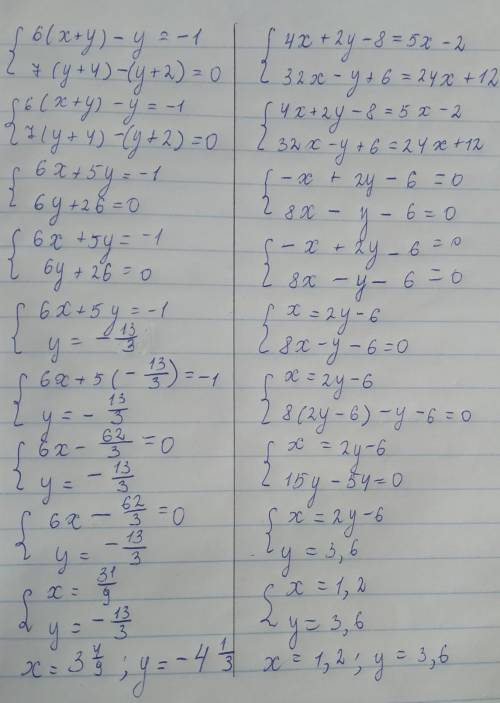 6(x+y)-y=-1
7(y+4)-(y+2)=0
6(x+y)-y=-1
7(y+4)-(y+2)=0
6x+5y=-1
6y+26=0
6x+5y=-1
6y+26=0
6x+5y=-1
y=-13/3
6x+5(-13/3)=-1
y=-13/3
6x-62/3=0
y=-13/3
6x-62/3=0
y=-13/3
x=31/9
y=-13/3
x=3 4/9; y=-4 1/3
4x+2y-8=5x-2
32x-y+6=24x+12
4x+2y-8=5x-2
32x-y+6=24x+12
-x+2y-6=0
8x-y-6=0
-x+2y-6=0
8x-y-6=0
x=2y-6
8x-y-6=0
x=2y-6
8(2y-6)-y-6=0
x=2y-6
15y-54=0
x=2y-6
y=3,6
x=1,2
y=3,6
x=1,2; y=3,6